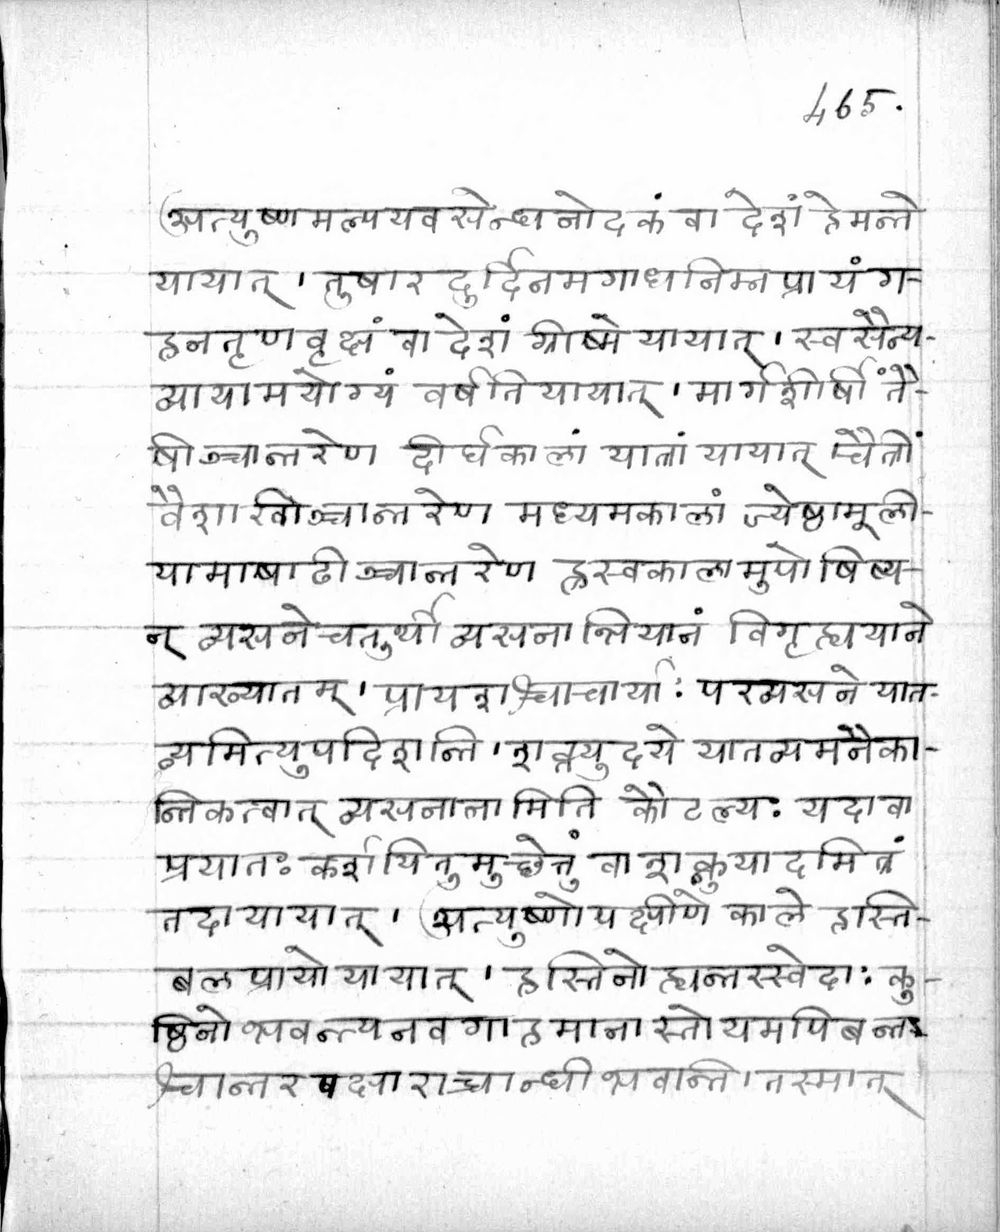 465.
अत्युष्णमल्पयवसेन्धनोदकं वा देशं हेमन्ते
यायात् । तुषारदुर्दिनमगाधनिम्नप्रायं ग-
हनतृणवृक्षं वा देशं ग्रीष्मे यायात् । स्वसैन्य-
व्यायामयोग्यं वर्षति यायात् । मार्गशीर्षीं तै-
षीञ्चान्तरेण दीर्घकालां यात्रां यायात् चैत्रीं
वैशाखीञ्चान्तरेण मध्यमकालां ज्येष्ठामूली-
यामाषाढीञ्चान्तरेण ह्रस्वकालामुपोषिष्य-
न् व्यसने चतुर्थी व्यसनान्नियानं विगृह्ययाने
व्याख्यातम् । प्रायशश्चाचार्याः परव्यसने यात-
व्यमित्युपदिशन्ति । शक्त्युदये यातव्यमनैका-
न्तिकत्वात् व्यसनानामिति कौटल्यः यदा वा
प्रयातः कर्शयितुमुच्छेत्तुं वा शक्नुयादमित्रं
तदा यायात् । अत्युष्णोपक्षीणे काले हस्ति-
बलप्रायो यायात् । हस्तिनो ह्यन्तस्स्वेदाः कु-
ष्ठिनो भवन्त्यनवगाहमानास्तोयमपिबन्त-
श्चान्तरवक्षाराच्चान्धीभवन्ति । तस्मात्